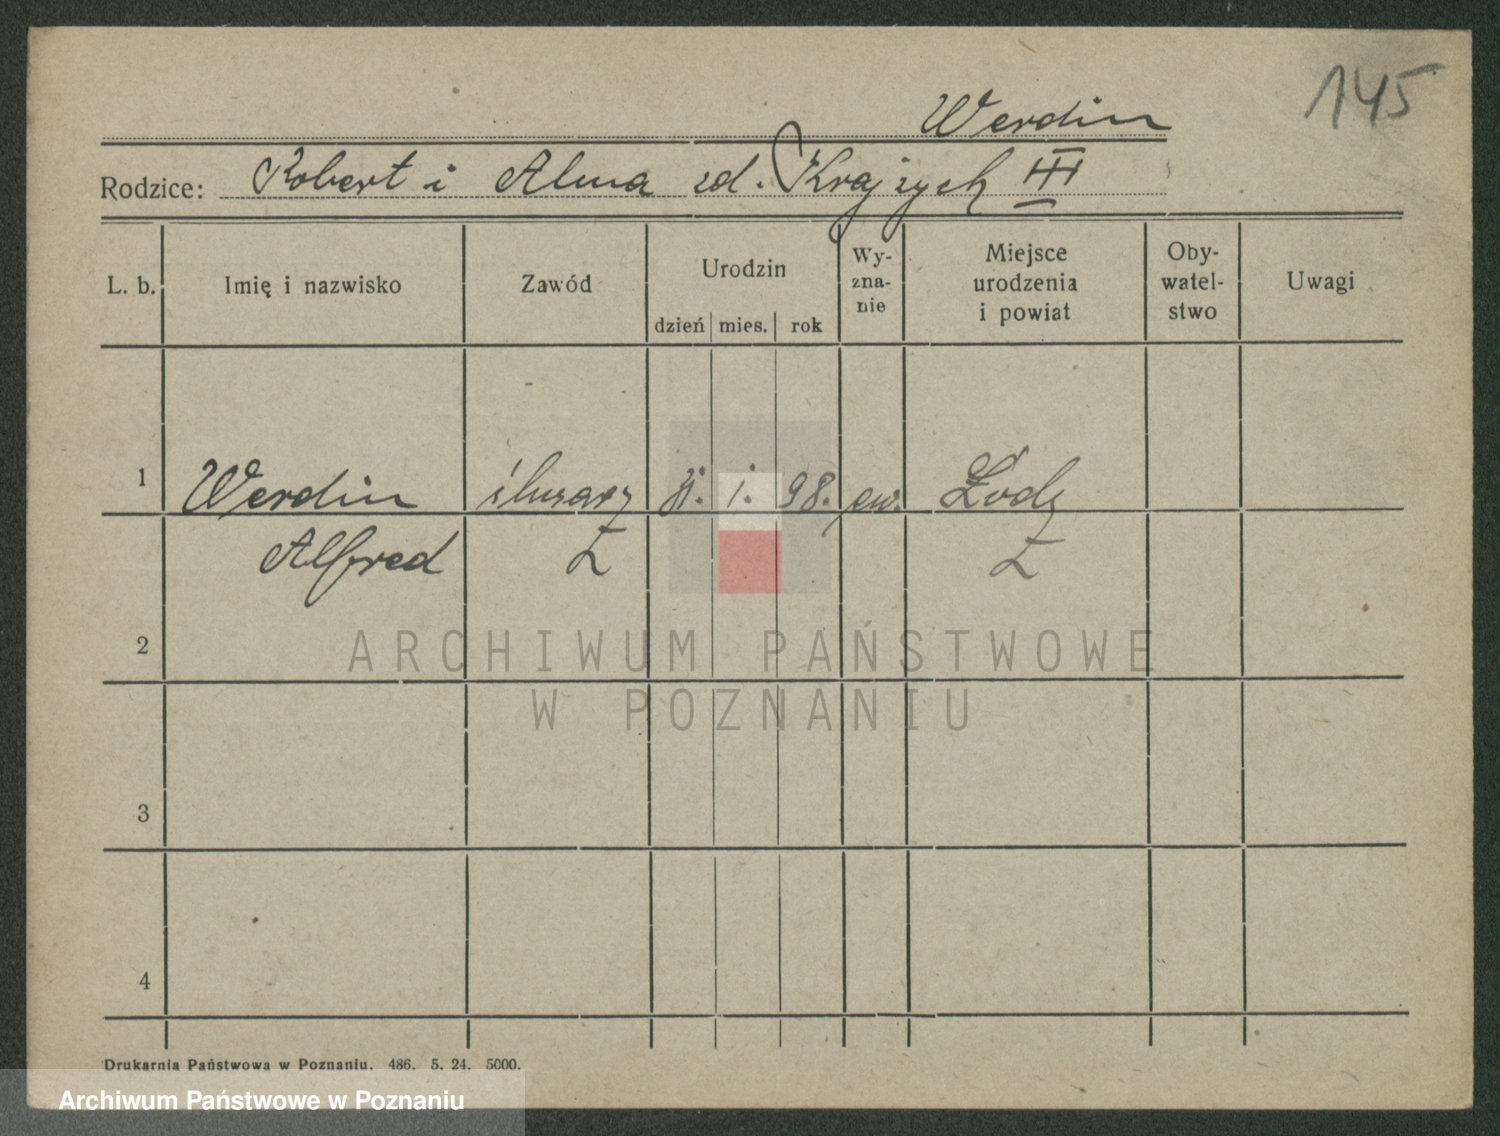 145
Werdin
Rodzice: Robert i Alma zd. Krajzych III
L. b. Imię i nazwisko Zawód Urodzin dzień mies. rok Wy-zna-nie Miejsce urodzenia i powiat Oby-watel-stwo Uwagi
1 Werdin ślusarz 11. 1. 98. ew. Łodz
Alfred Z Z
2
ARCHIWUM PAŃSTWOWE
W POZNANIU
3
4
Drukarnia Państwowa w Poznaniu. 486. 5. 24. 5000.
Archiwum Państwowe w Poznaniu